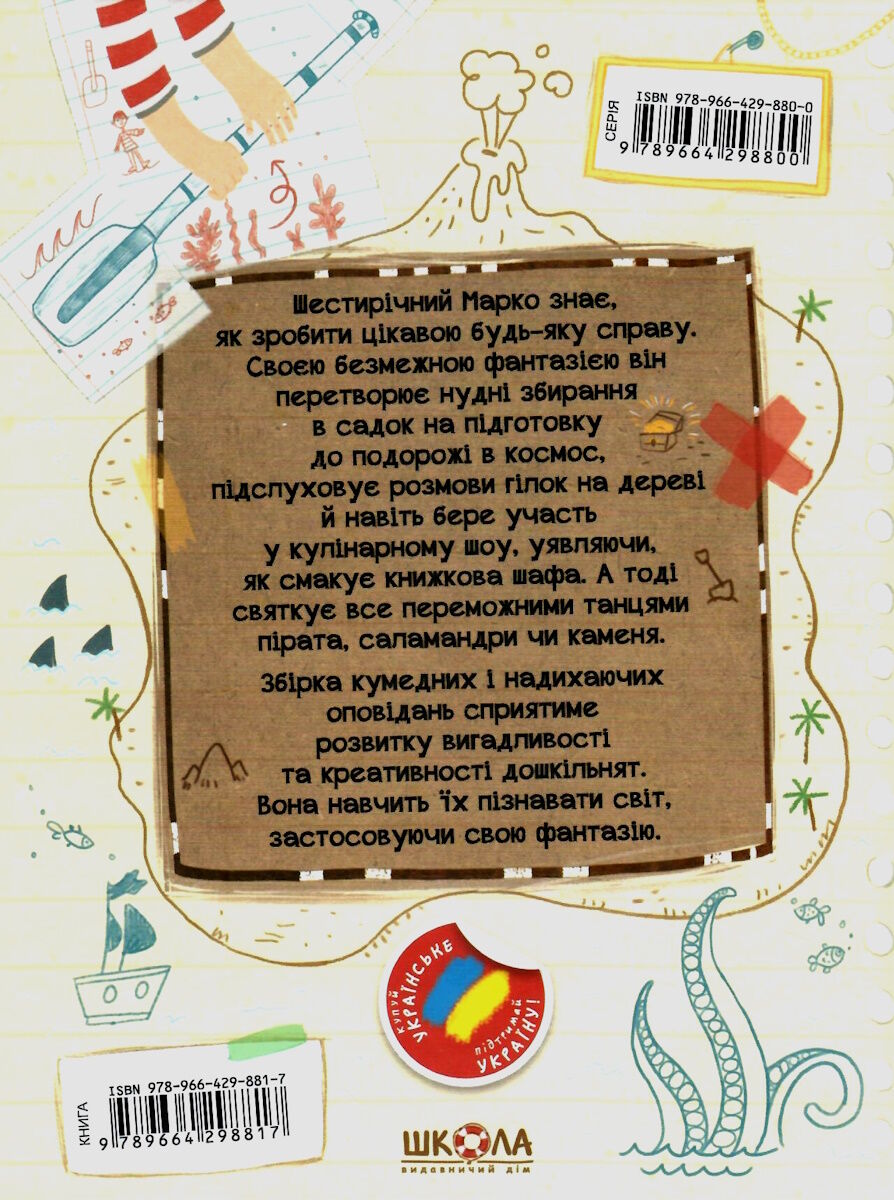 СЕРІЯ
ISBN 978-966-429-880-0
9 789664 298800
Шестирічний Марко знає,
як зробити цікавою будь-яку справу.
Своєю безмежною фантазією він
перетворює нудні збирання
в садок на підготовку
до подорожі в космос,
підслуховує розмови гілок на дереві
й навіть бере участь
у кулінарному шоу, уявляючи,
як смакує книжкова шафа. А тоді
святкує все переможними танцями
пірата, саламандри чи каменя.
Збірка кумедних і надихаючих
оповідань сприятиме
розвитку вигадливості
та креативності дошкільнят.
Вона навчить їх пізнавати світ,
застосовуючи свою фантазію.
КУПУЙ
УКРАЇНСЬКЕ
підтримай
УКРАЇНУ!
КНИГА
ISBN 978-966-429-881-7
9 789664 298817
ШКОЛА
видавничий дім